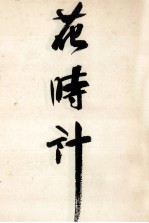 花時計